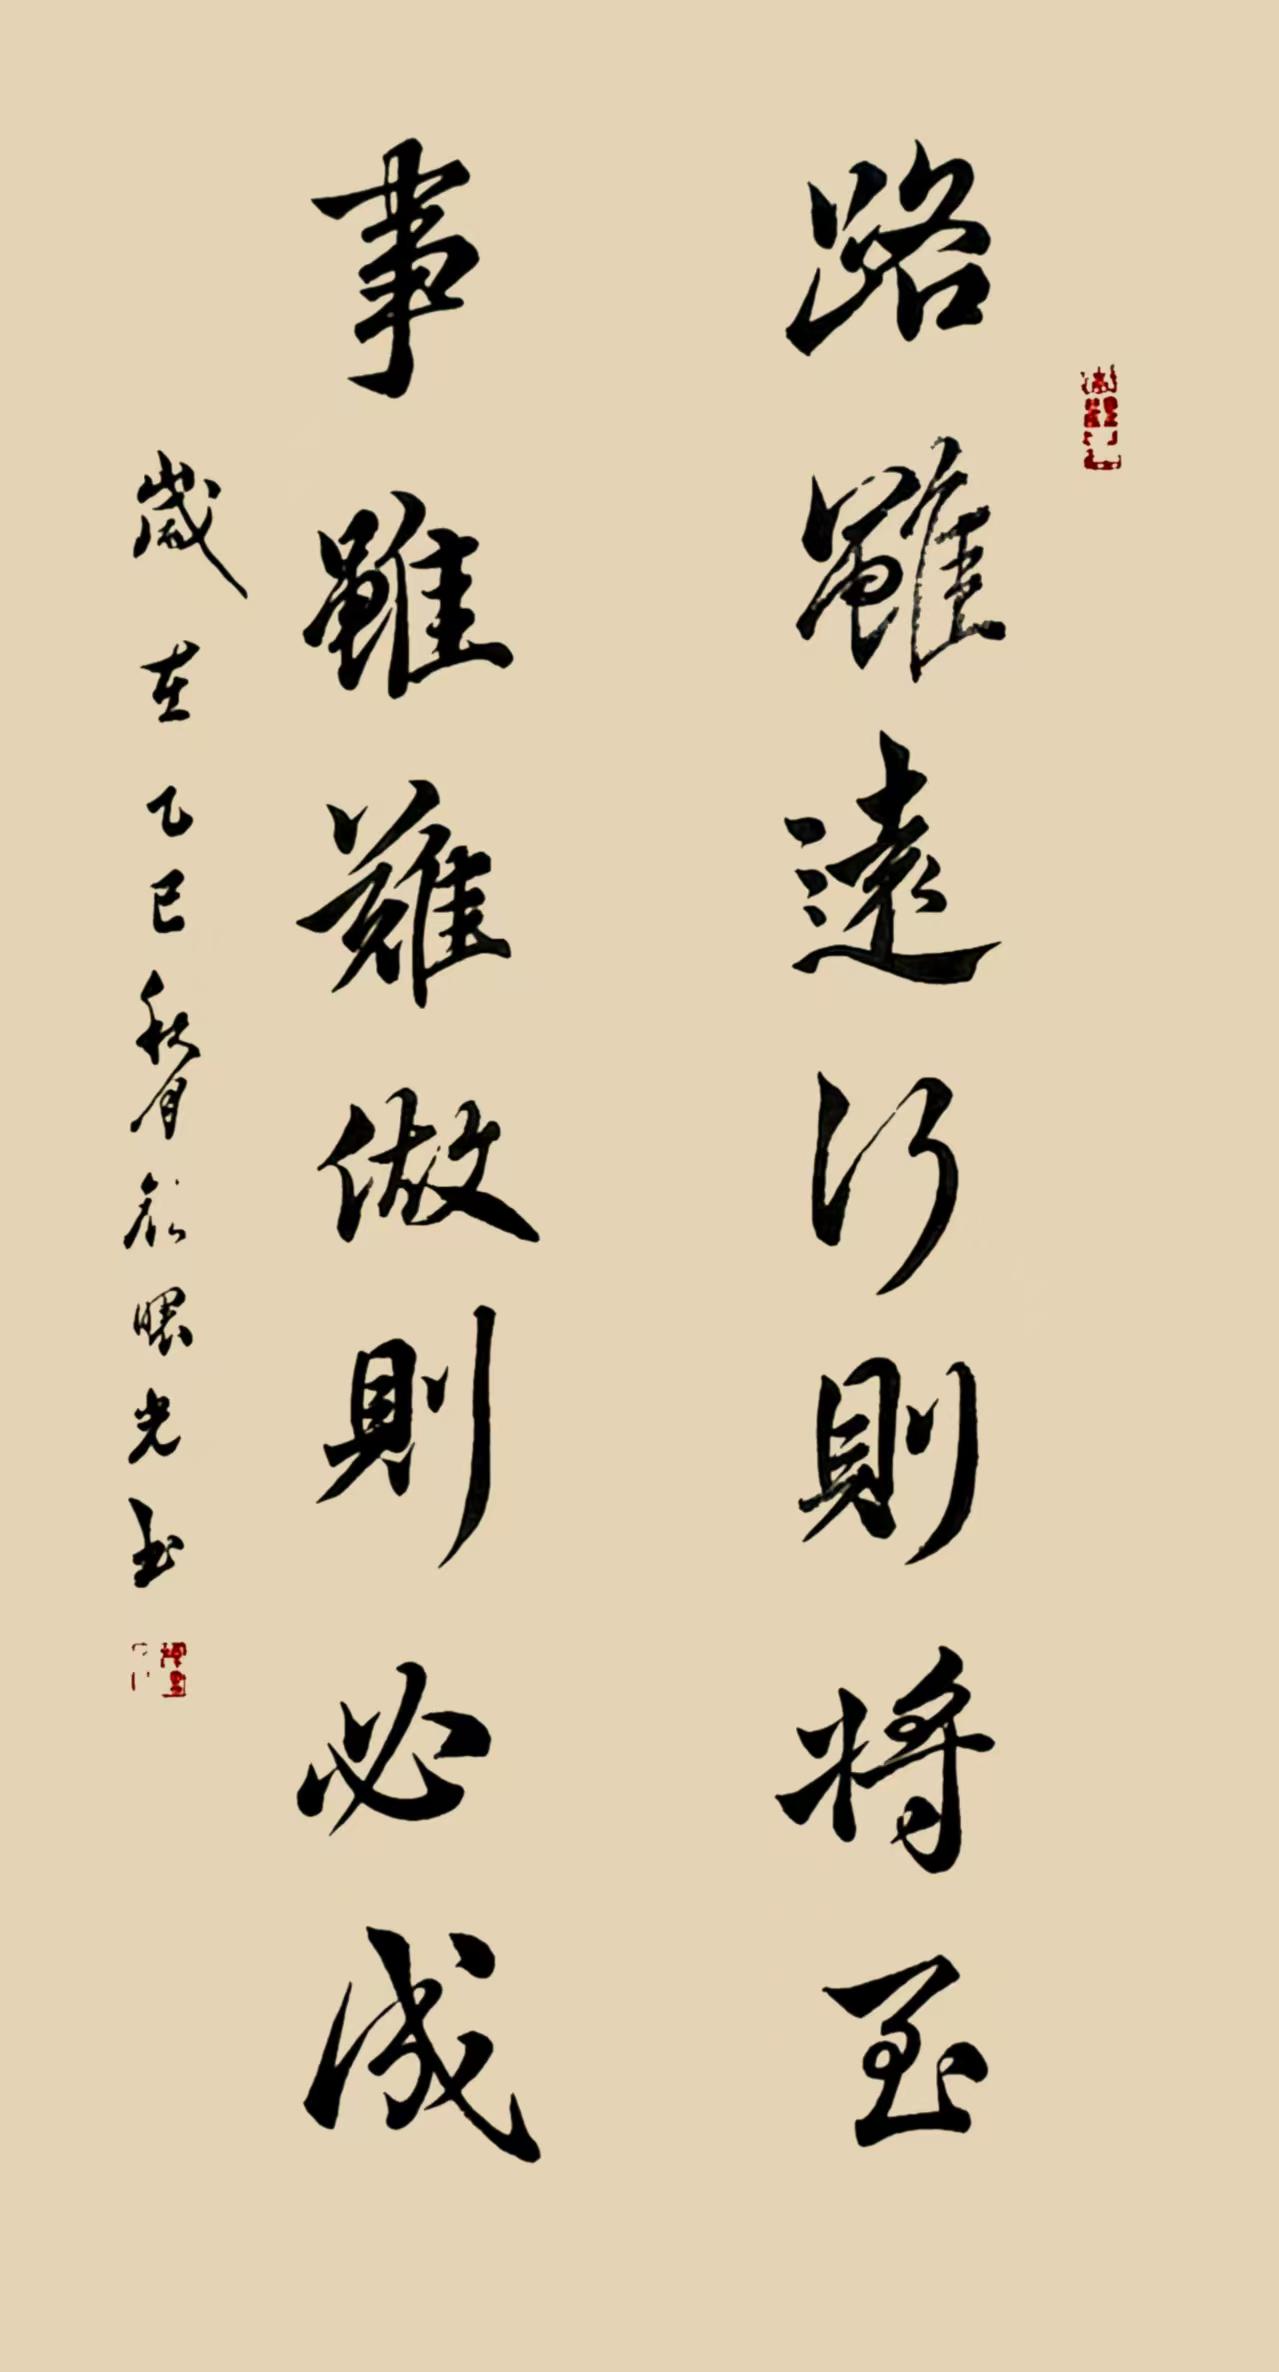 路雖遠行則將至
事雖難做則必成
歲在乙巳秋月 光書